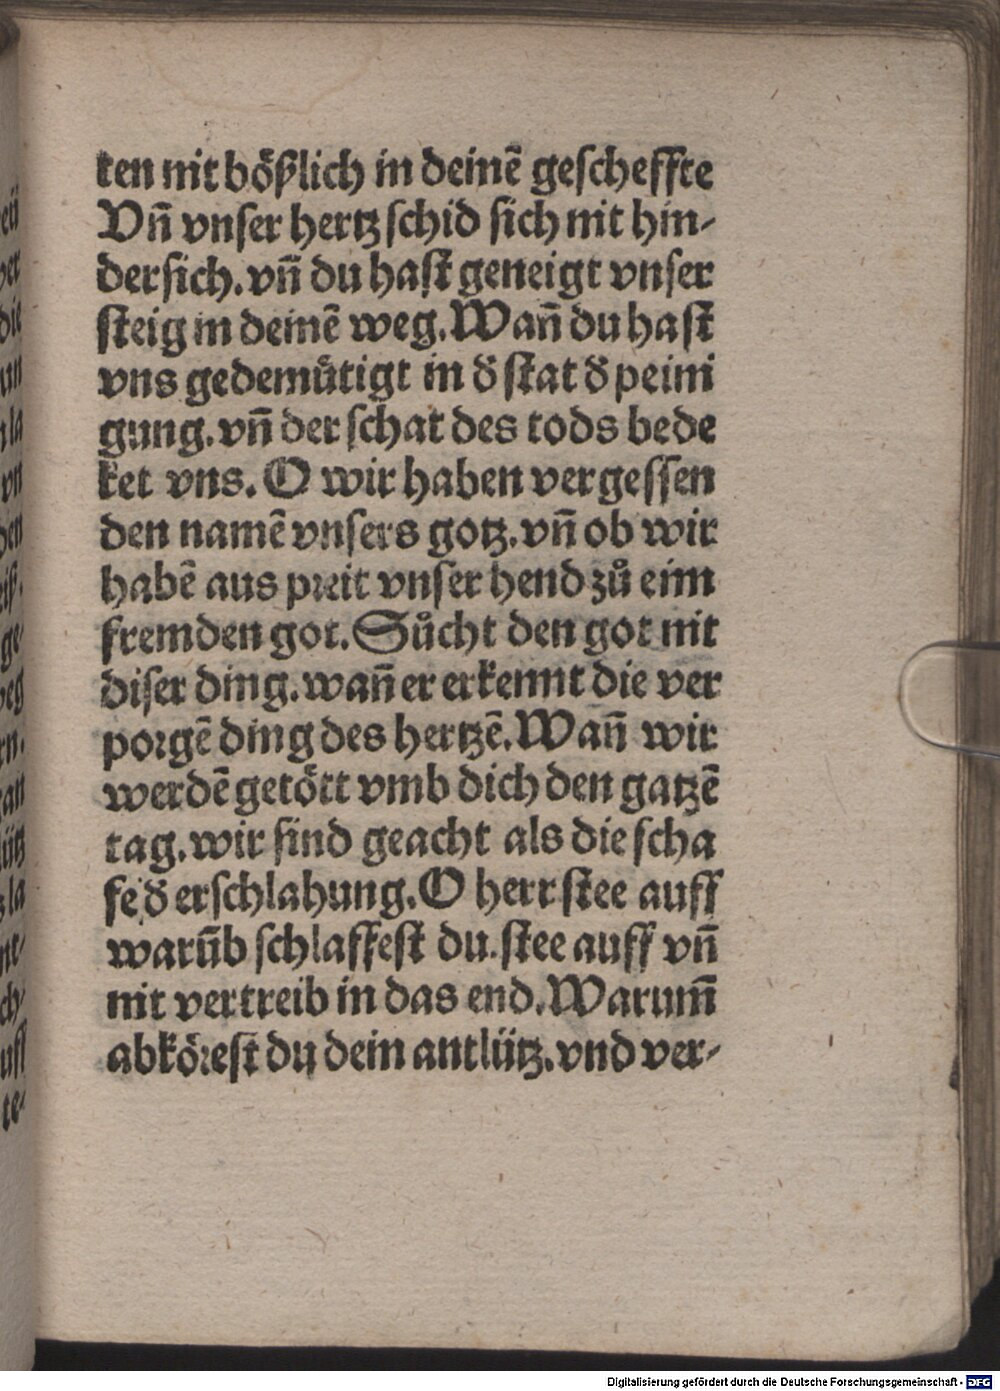 ten nit bößlich in deinē geſcheffte
Vn̄ vnſer hertz ſchid ſich nit hin-
derſich. vn̄ du haſt geneigt vnſer
ſteig in deinē weg. Wan̄ du haſt
vns gedemuͤtigt in đ ſtat đ peini
gung. vn̄ der ſchat des tods bede
ket vns. O wir haben vergeſſen
den namē vnſers gotz. vn̄ ob wir
habē aus preit vnſer hend zuͦ eim
fremden got. Suͦcht den got nit
diſer ding. wan̄ er erkennt die ver
porgē ding des hertzē. Wan̄ wir
werdē getoͤtt vmb dich den gatzē
tag. wir ſind geacht als die ſcha
fe đ erſchlahung. O herr ſtee auff
warūb ſchlaffeſt du. ſtee auff vn̄
nit vertreib in das end. Warum̄
abkoͤreſt du dein antlütz. vnd ver-
Digitalisierung gefördert durch die Deutsche Forschungsgemeinschaft - DFG